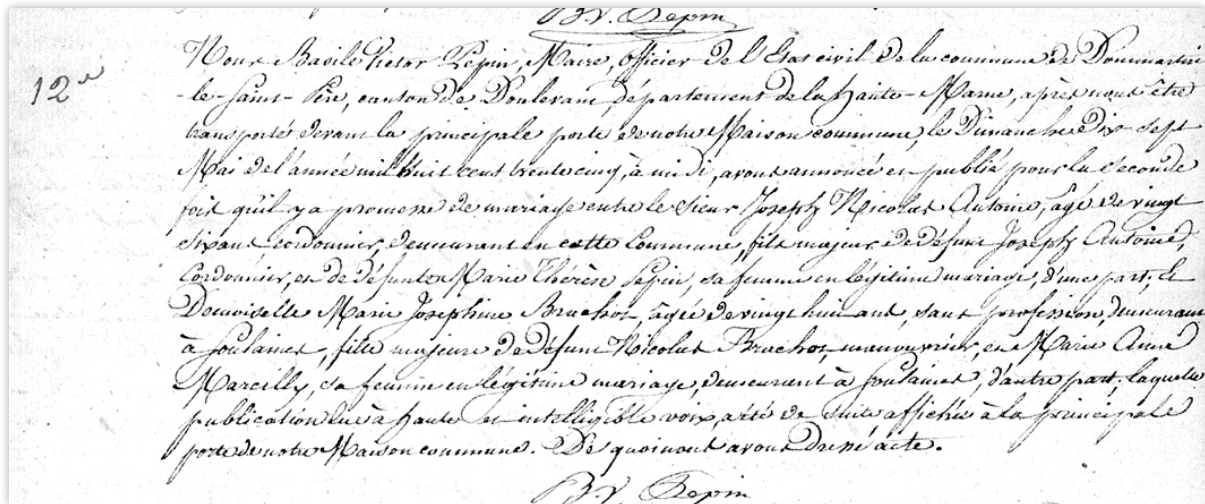 B.V. Pepin
12e
Nous Basile Victor Pepin, Maire, Officier de l'Etat civil de la commune de Dommartin
-le-Saint-Père, canton de Doulevant, département de la Haute-Marne, après nous être
transporté devant la principale porte de notre Maison commune, le Dimanche Dix-sept
Mai de l'année mil huit cent trente cinq, à midi, avons annoncé et publié pour la seconde
fois qu'il y a promesse de mariage entre le sieur Joseph Nicolas Antoine, âgé de vingt
six ans cordonnier, demeurant en cette Commune, fils majeur de défunt Joseph Antoine,
Cordonnier, et de défunte Marie Thérèse Pepin, sa femme en légitime mariage, d'une part, Et
Demoiselle Marie Josephine Bruchot âgée de vingt huit ans, sans profession, demeurant
à Soulaines, fille majeure de défunt Nicolas Bruchot, manouvrier, et Marie Anne
Marcilly, sa femme en légitime mariage, demeurant à Soulaines, d'autre part. laquelle
publication lue à haute et intelligible voix, a été de suite affichée à la principale
porte de notre Maison commune. De quoi nous avons dressé acte.
B.V. Pepin